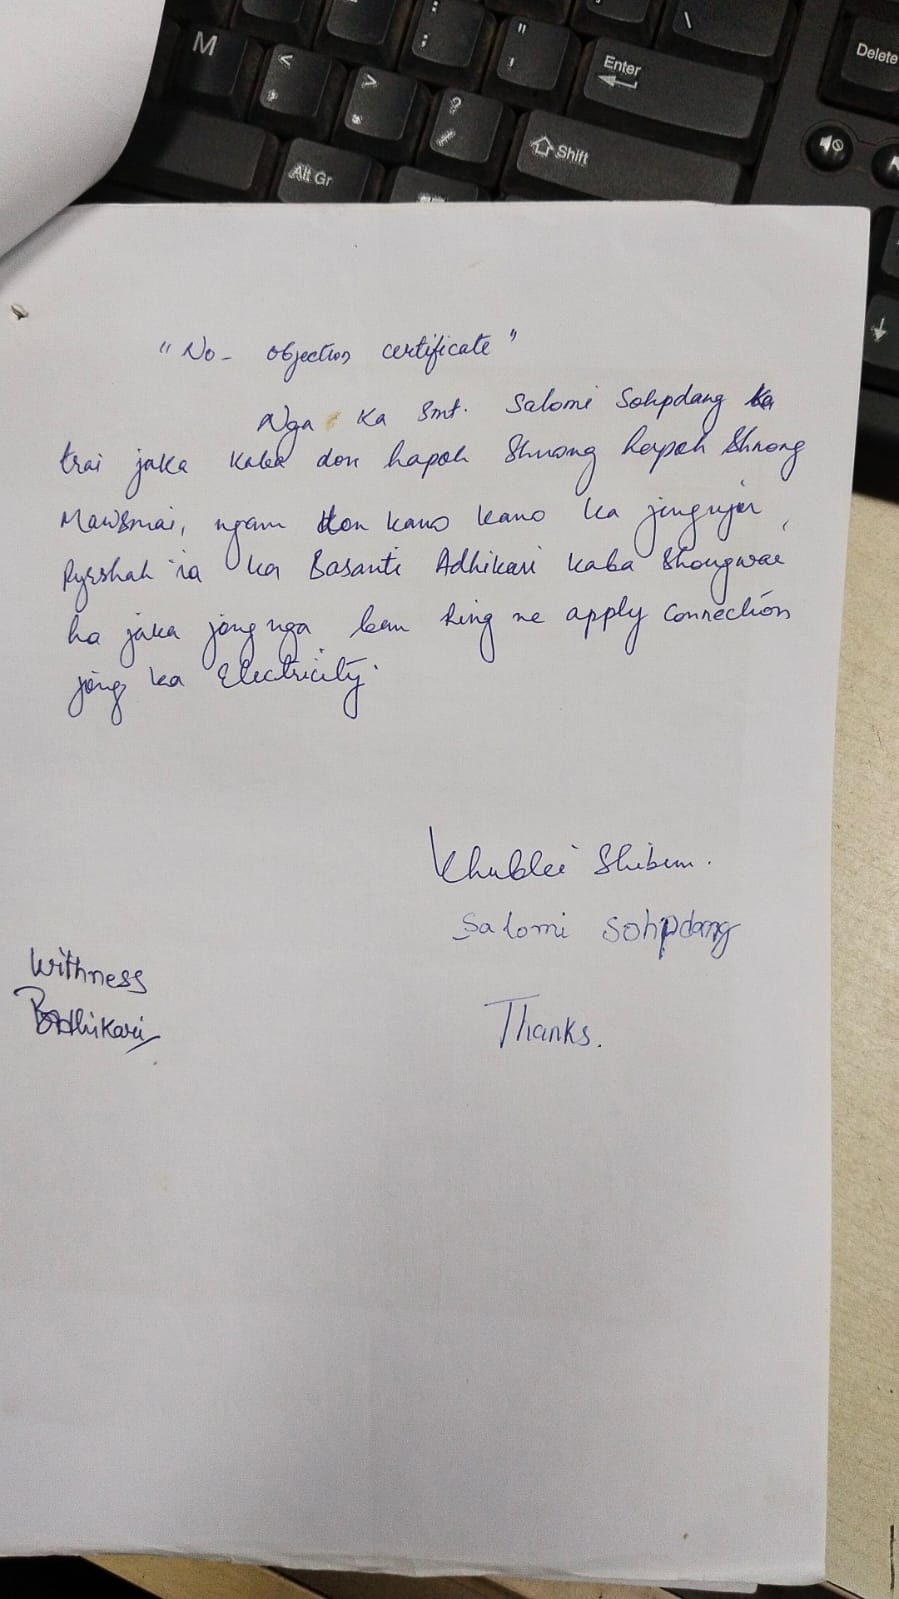 M
Enter
Delete
Alt Gr
Shift
"No- objection certificate"
Nga Ka Smt. Salomi Sohpdang ka
trai jaka kaba don hapoh Shnong hapoh Shnong
Mawsmai, ngam don kano kano ka jingujor
Pyrshah ia ka Basanti Adhikari kaba Shongwai
ha jaka jong nga ban Ring ne apply connection
jong ka Electricity.
Khublei Shibun.
Salomi Sohpdang
Withness
BAdhikari
Thanks.